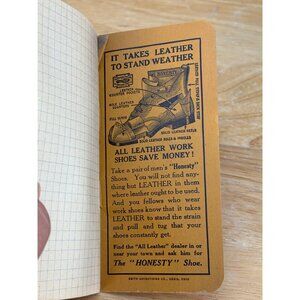 IT TAKES LEATHER
TO STAND WEATHER
LEATHER
COUNTER POCKETS
SOLE LEATHER
COUNTERS
FULL VAMP
HONESTY
SOLID LEATHER HEELS
SOLID LEATHER SOLES & INSOLES
ALL LEATHER WORK
SHOES SAVE MONEY!
Take a pair of men's "Honesty"
Shoes. You will not find any-
thing but LEATHER in them
where leather ought to be used.
And you fellows who wear
work shoes know that it takes
LEATHER to stand the strain
and pull and tug that your
shoes constantly get.
Find the "All Leather" dealer in or
near your town and ask him for
The "HONESTY" Shoe.